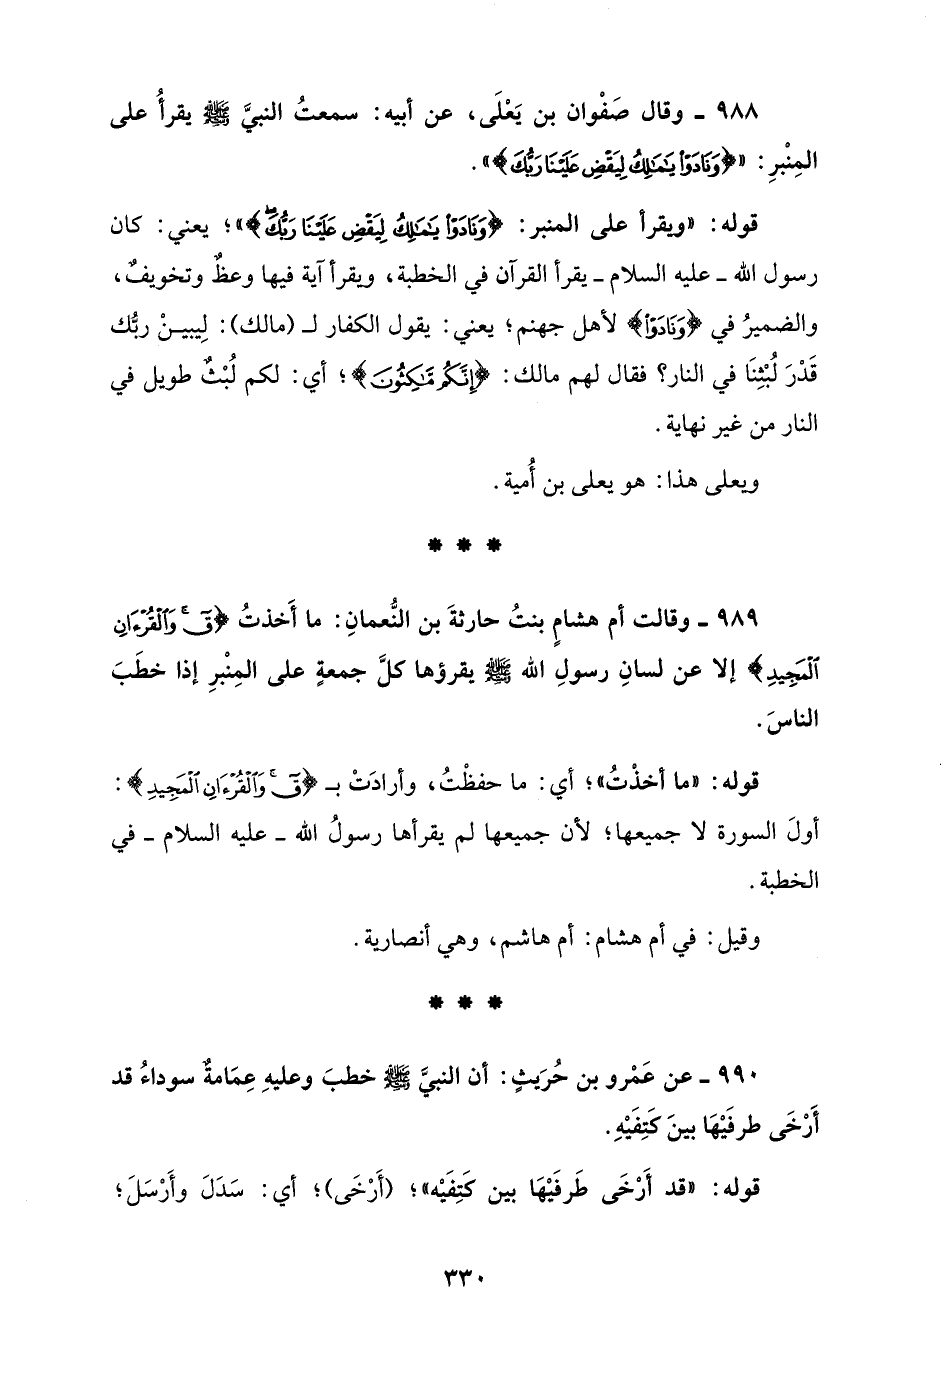 ٩٨٨ ـ وقال صَفْوان بن يَعْلَى، عن أبيه: سمعتُ النبيَّ ﷺ يقرأُ على
المِنْبرِ: «﴿وَنَادَوْا۟ يَـٰمَـٰلِكُ لِيَقْضِ عَلَيْنَا رَبُّكَ﴾».
قوله: «ويقرأ على المنبر: ﴿وَنَادَوْا۟ يَـٰمَـٰلِكُ لِيَقْضِ عَلَيْنَا رَبُّكَ ۖ﴾»؛ يعني: كان
رسول الله ـ عليه السلام ـ يقرأ القرآن في الخطبة، ويقرأ آية فيها وعظٌ وتخويفٌ،
والضميرُ في ﴿وَنَادَوْا۟﴾ لأهل جهنم؛ يعني: يقول الكفار لـ (مالك): لِيبيـنْ ربُّك
قَدْرَ لُبْثِنَا في النار؟ فقال لهم مالك: ﴿إِنَّكُم مَّـٰكِثُونَ﴾؛ أي: لكم لُبْثٌ طويل في
النار من غير نهاية.
ويعلى هذا: هو يعلى بن أُمية.
* * *
٩٨٩ ـ وقالت أم هشامٍ بنتُ حارثةَ بن النُّعمانِ: ما أَخذتُ ﴿قٓ ۚ وَٱلْقُرْءَانِ
ٱلْمَجِيدِ﴾ إلا عن لسانِ رسولِ الله ﷺ يقرؤها كلَّ جمعةٍ على المِنْبرِ إذا خطَبَ
الناسَ.
قوله: «ما أخذْتُ»؛ أي: ما حفظْتُ، وأرادَتْ بـ ﴿قٓ ۚ وَٱلْقُرْءَانِ ٱلْمَجِيدِ﴾:
أولَ السورة لا جميعها؛ لأن جميعها لم يقرأها رسولُ الله ـ عليه السلام ـ في
الخطبة.
وقيل: في أم هشام: أم هاشم، وهي أنصارية.
* * *
٩٩٠ ـ عن عَمْرو بن حُرَيثٍ: أن النبيَّ ﷺ خطبَ وعليهِ عِمَامةٌ سوداءُ قد
أَرْخَى طرفَيْهَا بينَ كَتِفَيْهِ.
قوله: «قد أَرْخَى طَرفَيْهَا بين كَتِفَيْه»؛ (أَرْخَى)؛ أي: سَدَلَ وأَرْسَلَ؛
٣٣٠